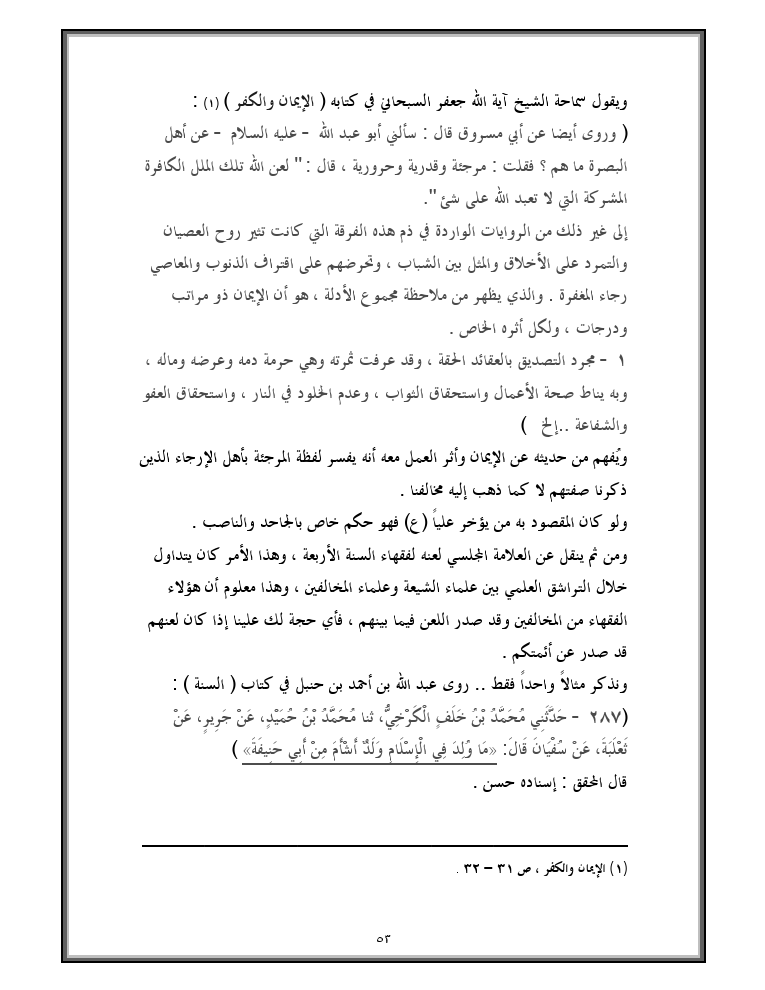 ويقول سماحة الشيخ آية الله جعفر السبحاني في كتابه ( الإيمان والكفر ) (١) :
( وروى أيضا عن أبي مسروق قال : سألني أبو عبد الله - عليه السلام - عن أهل
البصرة ما هم ؟ فقلت : مرجئة وقدرية وحرورية ، قال : " لعن الله تلك الملل الكافرة
المشركة التي لا تعبد الله على شئ ".
إلى غير ذلك من الروايات الواردة في ذم هذه الفرقة التي كانت تثير روح العصيان
والتمرد على الأخلاق والمثل بين الشباب ، وتحرضهم على اقتراف الذنوب والمعاصي
رجاء المغفرة . والذي يظهر من ملاحظة مجموع الأدلة ، هو أن الإيمان ذو مراتب
ودرجات ، ولكل أثره الخاص .
١ - مجرد التصديق بالعقائد الحقة ، وقد عرفت ثمرته وهي حرمة دمه وعرضه وماله ،
وبه يناط صحة الأعمال واستحقاق الثواب ، وعدم الخلود في النار ، واستحقاق العفو
والشفاعة ..إلخ )
ويُفهم من حديثه عن الإيمان وأثر العمل معه أنه يفسر لفظة المرجئة بأهل الإرجاء الذين
ذكرنا صفتهم لا كما ذهب إليه مخالفنا .
ولو كان المقصود به من يؤخر علياً (ع) فهو حكم خاص بالجاحد والناصب .
ومن ثم ينقل عن العلامة المجلسي لعنه لفقهاء السنة الأربعة ، وهذا الأمر كان يتداول
خلال التراشق العلمي بين علماء الشيعة وعلماء المخالفين ، وهذا معلوم أن هؤلاء
الفقهاء من المخالفين وقد صدر اللعن فيما بينهم ، فأي حجة لك علينا إذا كان لعنهم
قد صدر عن أئمتكم .
ونذكر مثالاً واحداً فقط .. روى عبد الله بن أحمد بن حنبل في كتاب ( السنة ) :
(٢٨٧ - حَدَّثَنِي مُحَمَّدُ بْنُ خَلَفٍ الْكَرْخِيُّ، ثنا مُحَمَّدُ بْنُ حُمَيْدٍ، عَنْ جَرِيرٍ، عَنْ
ثَعْلَبَةَ، عَنْ سُفْيَانَ قَالَ: «مَا وُلِدَ فِي الْإِسْلَامِ وَلَدٌ أَشْأَمَ مِنْ أَبِي حَنِيفَةَ» )
قال المحقق : إسناده حسن .
(١) الإيمان والكفر ، ص ٣١ – ٣٢ .
٥٣